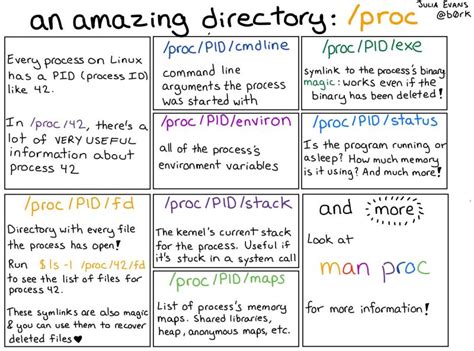 an amazing directory: /proc
JULIA EVANS
@b0rk
Every process on Linux
has a PID (process ID)
like 42.
In /proc/42, there's a
lot of VERY USEFUL
information about
process 42
/proc/PID/cmdline
command line
arguments the process
was started with
/proc/PID/exe
symlink to the process's binary
magic: works even if the
binary has been deleted!
/proc/PID/environ
all of the process's
environment variables
/proc/PID/status
Is the program running or
asleep? How much memory
is it using? And much more!
/proc/PID/fd
Directory with every file
the process has open!
Run $ ls -l /proc/42/fd
to see the list of files for
process 42.
These symlinks are also magic
& you can use them to recover
deleted files ♥
/proc/PID/stack
The kernel's current stack
for the process. Useful if
it's stuck in a system call
/proc/PID/maps
List of process's memory
maps. Shared libraries,
heap, anonymous maps, etc.
and more
Look at
man proc
for more information!